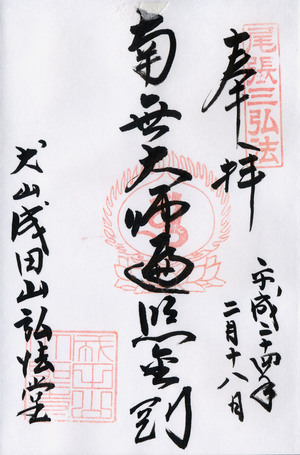 尾張三弘法
奉拝
平成二十四年
二月十八日
南無大師遍照金剛
犬山成田山弘法堂